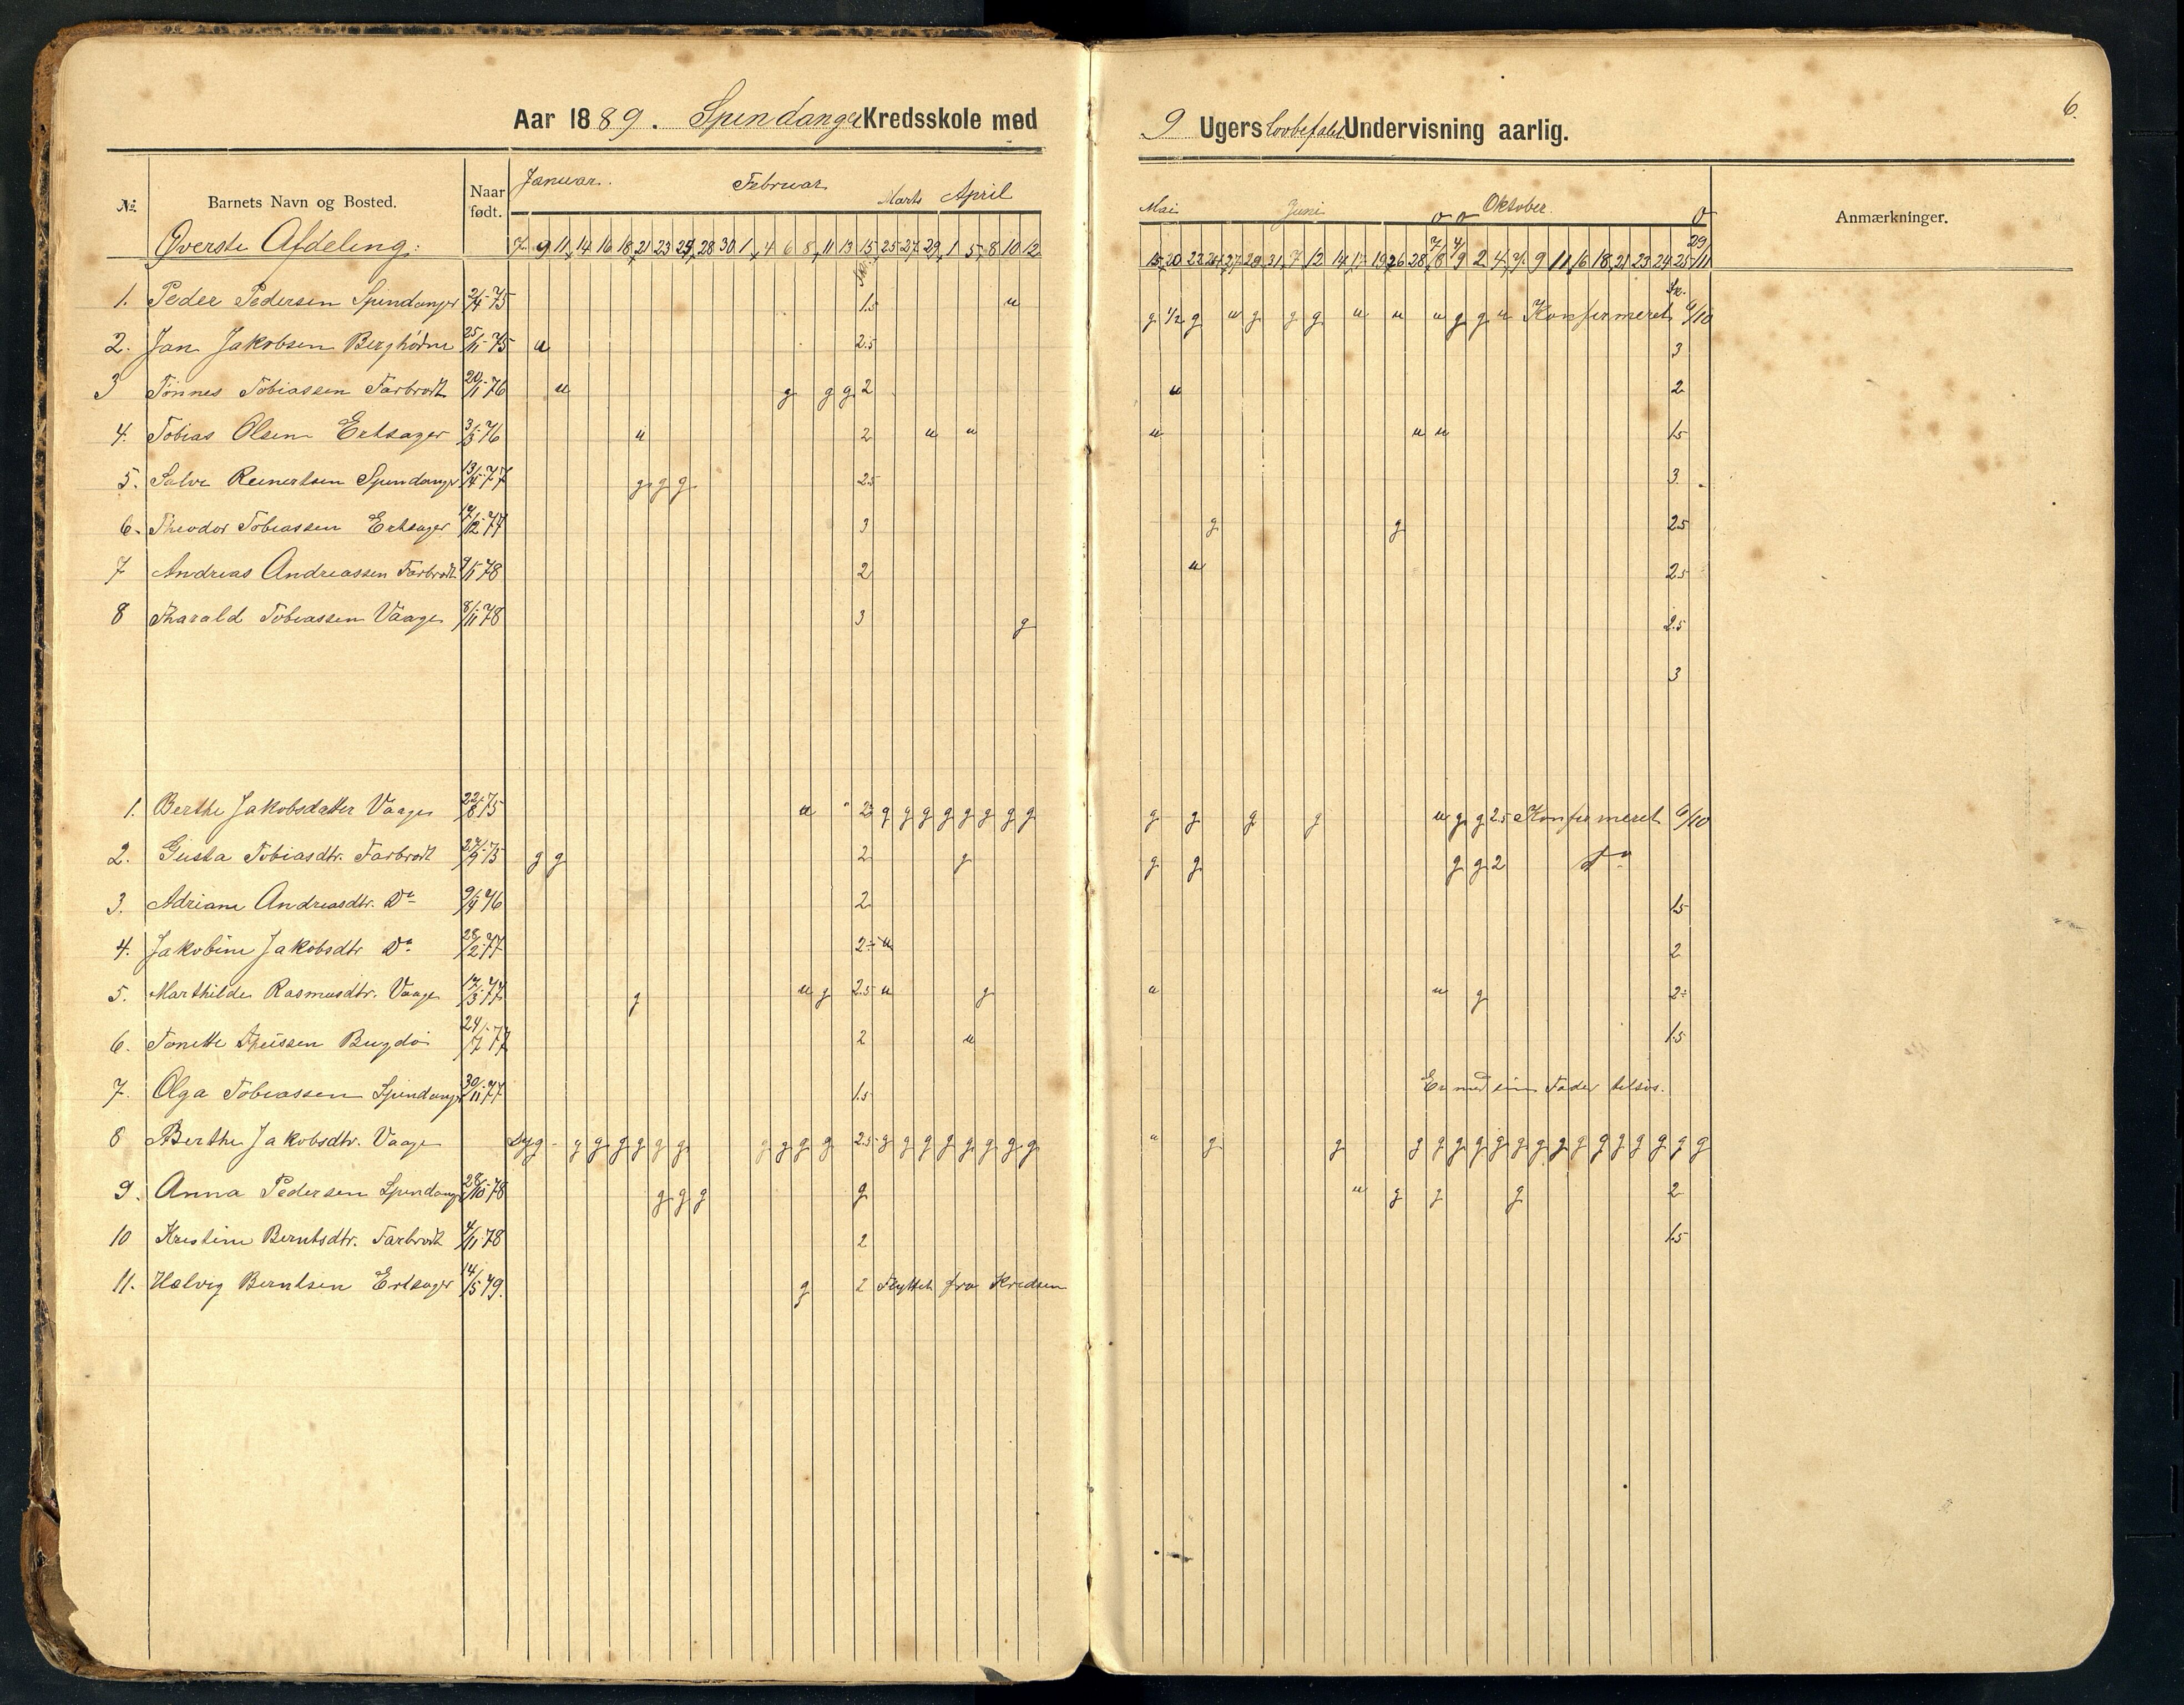 6.
Aar 1889. Spindanger Kredsskole med 9 Ugers lovbefalet Undervisning aarlig.
№ Barnets Navn og Bosted. Naar født. Januar. Februar Marts April Mai Juni Oktober. Anmærkninger.
Øverste Afdeling: 7 9 11 14 16 18 21 23 25 28 30 1 4 6 8 11 13 15 25 27 29 1 5 8 10 12 15 20 22 24 27 29 31 7 12 14 17 19 26 28 7/8 4/9 2 4 7 9 11 16 18 21 23 24 25 29/11
1. Peder Pedersen Spindanger 2/4-75 1.5 u g 1/2 g u g g g u u u g g u Konfirmeret 6/10
2. Jan Jakobsen Berghödne 25/11-75 u 2.5 3
3 Tönnes Tobiassen Farbrodt 20/1-76 u g g g 2 u 2
4. Tobias Olsen Ertsager 3/3-76 u 2 u u u u u 1.5
5. Salve Reinertsen Spindanger 13/4-77 g g g 2.5 3
6. Theodor Tobiassen Ertsager 14/12-77 3 g g 2.5
7 Andreas Andreassen Farbrodt 9/1-78 2 u 2.5
8 Tharald Tobiassen Vaage 8/11-78 3 g 2.5
3
1. Berthe Jakobsdatter Vaage 22/8-75 u " 2.5 g g g g g g g g g g g g u g g 2.5 Konfirmeret 6/10
2. Gusta Tobiasdtr. Farbrodt 27/9-75 g g 2 g g g g g 2 do
3. Adriane Andreasdtr. Do 9/9-76 2 1.5
4. Jakobine Jakobsdtr Do 28/2-77 2÷ u 2
5. Marthilde Rasmusdtr. Vaage 17/3-77 g u g 2.5 u g u u g 2÷
6. Tonette Theissen Bugdø 24/7-77 2 u 1.5
7. Olga Tobiassen Spindanger 30/11-77 1.5 Er med sin Fader tilsøs.
8 Berthe Jakobsdtr. Vaage Syg - g g g g g g g g g g 2.5 g g g g g g g g " g g g g g g g g g g g g g g g g g
9. Anna Pedersen Spindanger 28/10-78 g g g g u g g g 2
10 Kristine Berntsdtr. Farbrodt 4/11-78 2 1.5
11. Halvig Berntsen Ertsager 14/5-79. g 2 Flyttet fra Kredsen